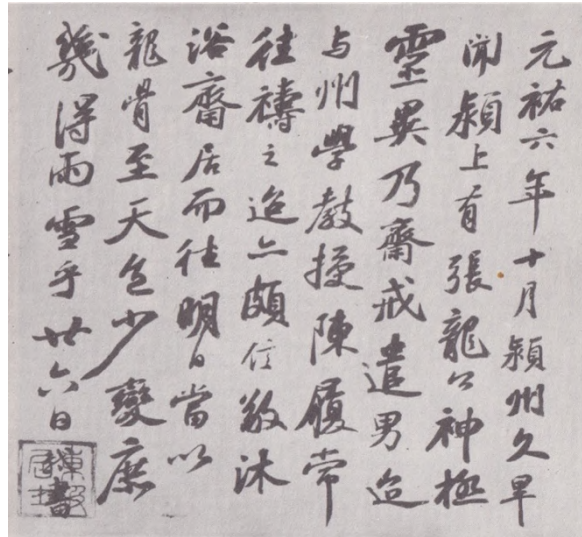 元祐六年十月潁州久旱
聞潁上有張龍公神極
靈異乃齋戒遣男迨
与州學教授陳履常
往禱之迨亦頗信敬沐
浴齋居而往明日當以
龍骨至天色少變庶
幾得雨雪乎廿六日書